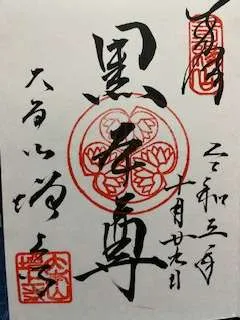 奉拝
黒本尊
令和五年
十月廿九日
大本山増上寺